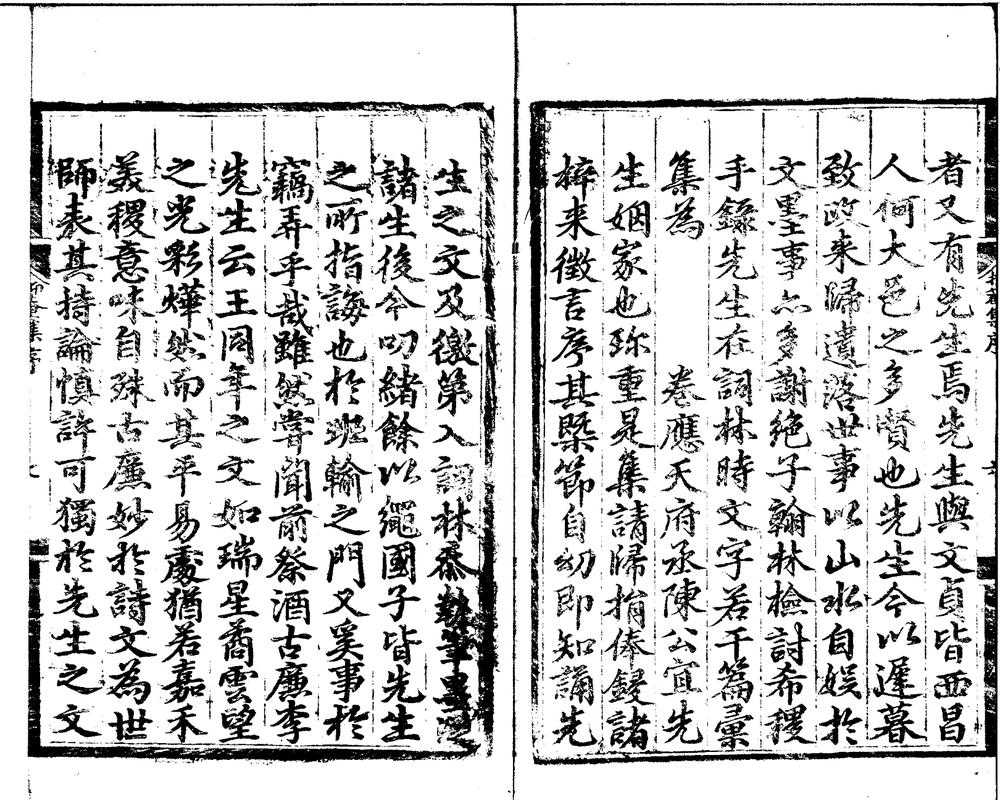 者又有先生焉先生與文貞皆西昌
人何大邑之多賢也先生今以遲暮
致政来歸遺落世事以山水自娱於
文墨事亦多謝絶子翰林檢討希稷
手錄先生在詞林時文字若干篇彙
集為　　卷應天府丞陳公宜先
生姻家也珎重是集請歸捐俸鋟諸
梓来徴言序其槩節自幼即知誦先
生之文及徼第入詞林忝執筆
諸生後今叨緒餘以繩國子皆先生
之所指誨也於班輸之門又奚事於
竊弄乎哉雖然嘗聞前祭酒古廉李
先生云王同年之文如瑞星矞雲望
之光彩燁然而其平易處猶若嘉禾
美稷意味自殊古廉妙於詩文為世
師表其持論慎許可獨於先生之文